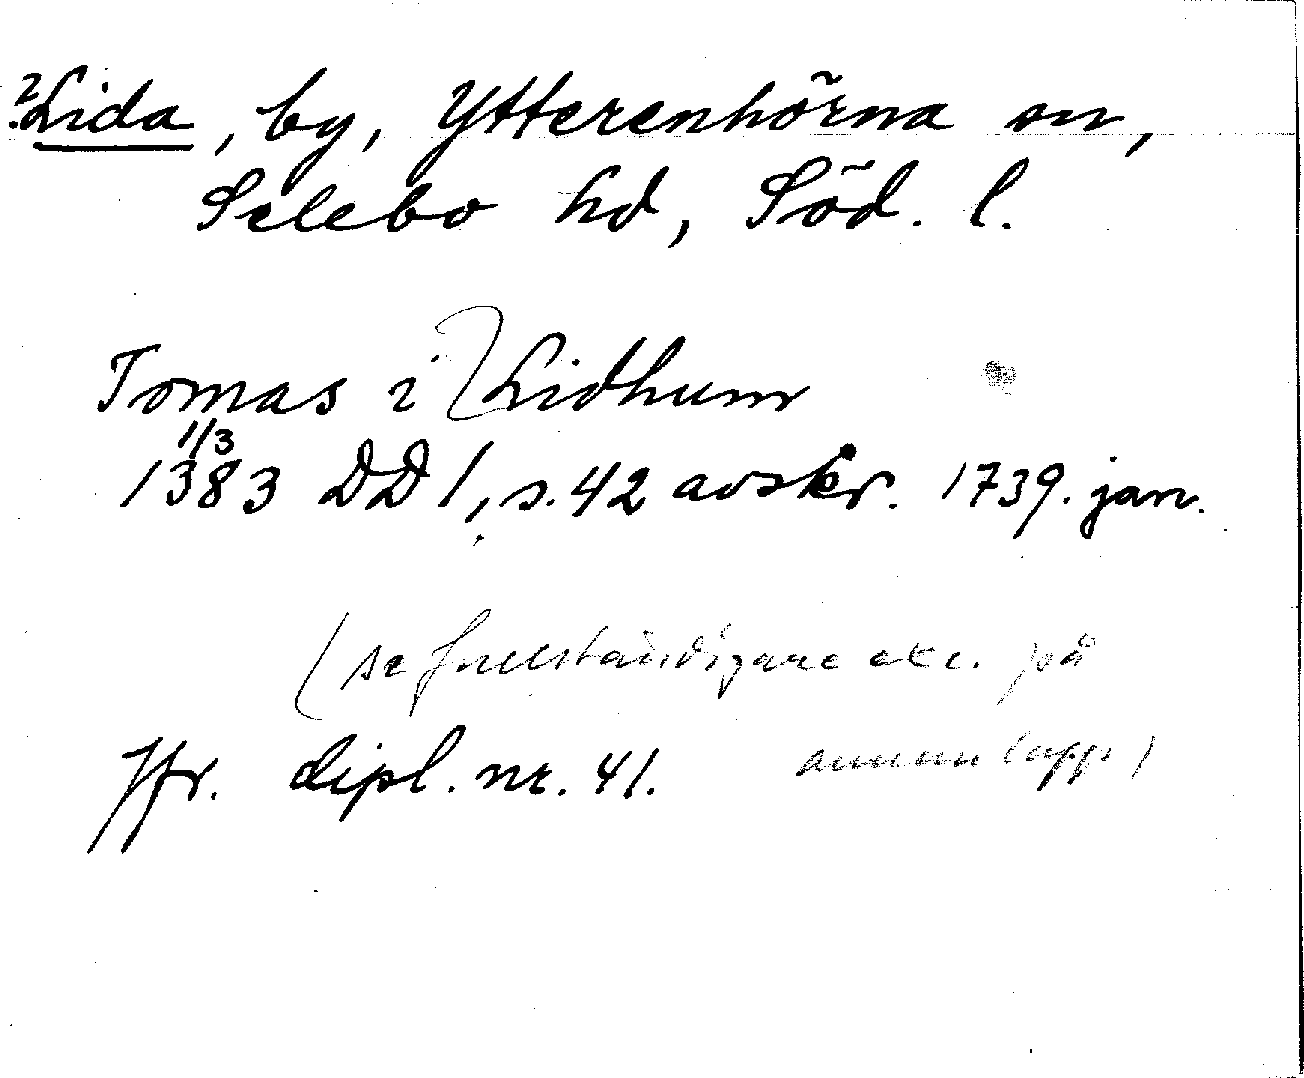 ?Lida, by, Ytterenhörna sn,
Selebo hd, Söd. l.
Tomas i Lidhum
1/3
1383 DD 1, s. 42 avskr. 1739. jan.
(se fullständigare exc. på
annan lapp)
Jfr. dipl. nr. 41.